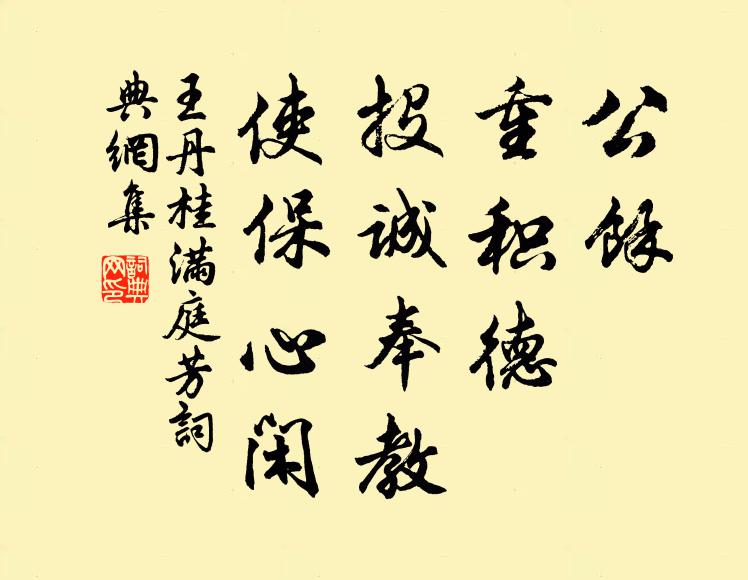 公餘
重积德
投诚奉教
使保心闲
王丹桂满庭芳詞
典網集
詞典网印